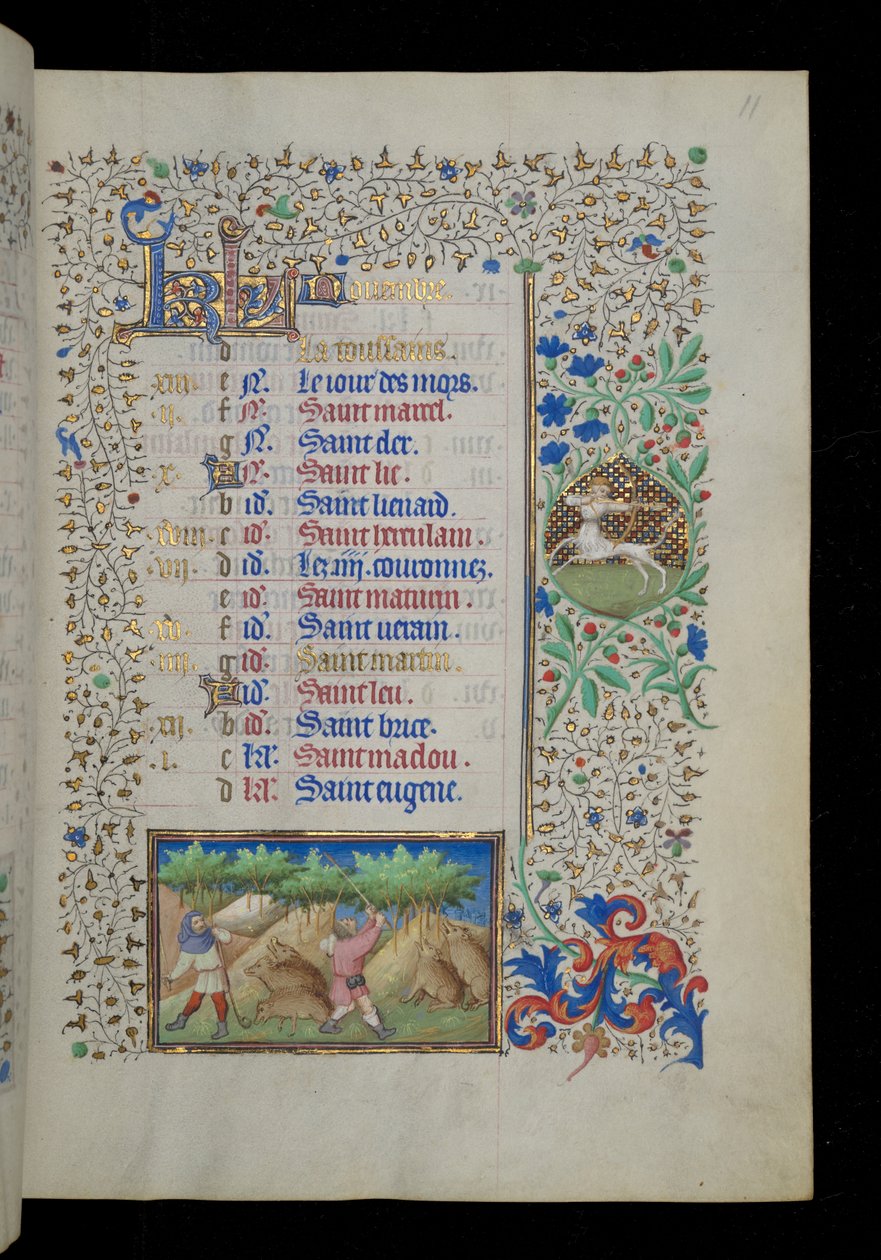 11
KL Nouembre.
d La toussains.
xiii. e N. Le iour des mors.
.ii. f N. Saint marcel.
g N. Saint cler.
.x. A N. Saint lie.
b id. Saint lienard.
.xviii. c id. Saint herculain.
.vii. d id. Les iiii. couronnez.
e id. Saint maturin.
.xv. f id. Saint verain.
.iiii. g id. Saint martin.
A id. Saint leu.
.xii. b id. Saint brice.
.i. c kl. Saint maclou.
d kl. Saint eugene.